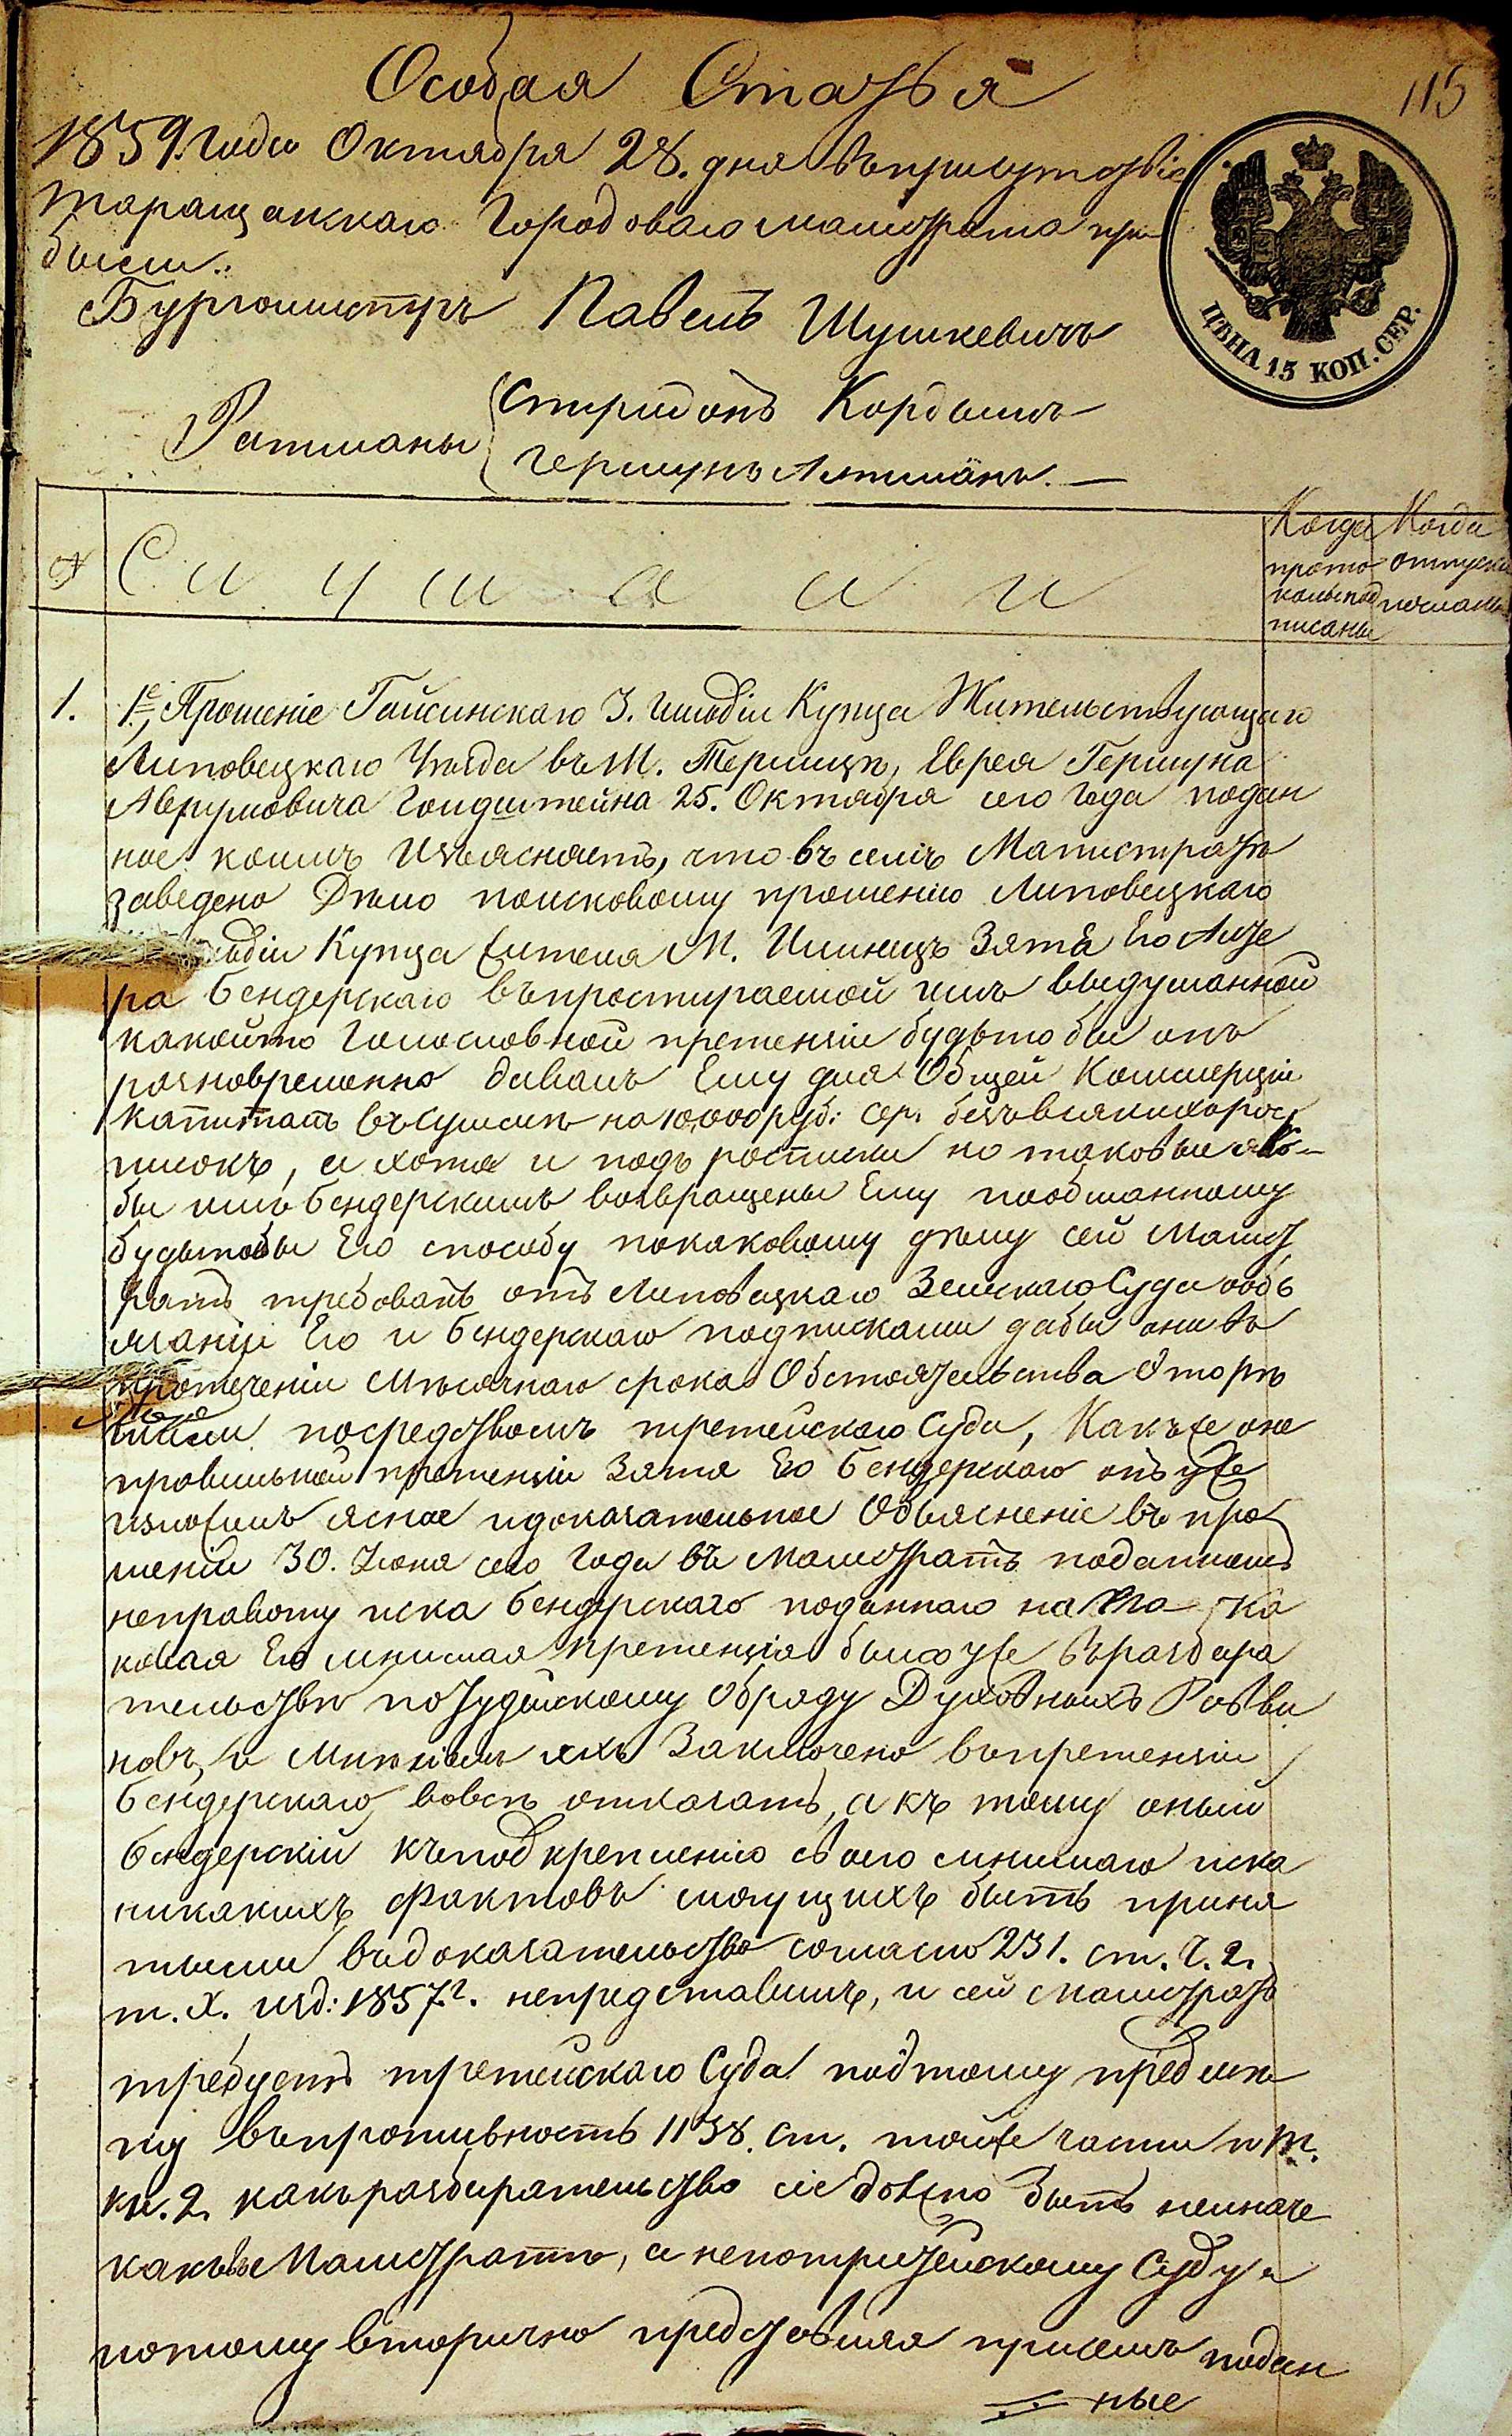 115
Особая Статья
1859. года Октября 28. дня въ присутствіе
таращанскаго Городоваго магистрата при
были:
Бургомистръ Павелъ Шушкевичъ
ЦѢНА 15 КОП. СЕР.
Ратманы Спиридонъ Кордышъ
Гершунъ Алтманъ.
№ Слушали
Когда прото
колы под
писаны
Когда
отпуски
посланы
1. 1е, Прошеніе Гайсинскаго 3. гильдіи Купца Жительствующаго
Липовецкаго Уѣзда въ М. Терлицѣ, Еврея Гершуна
Аврумовича Голдштейна 25. Октября сего года подан
ное коимъ изъясняетъ, что въ семъ Магистратѣ
заведено Дѣло по исковому прошенію Липовецкаго
ьдіи Купца жителя М. Илинецъ Зятя Его Лизе
ра Бендерскаго въ простираемой имъ выдуманной
какойто голословной претензіи будьто бы онъ
разновременно давалъ Ему для Общей Коммерціи
капиталъ въ суммѣ на 10,000 руб: сер. безъ всякихъ рос
писокъ, а хотя и подъ росписки но таковыя якъ-
бы имъ Бендерскимъ возвращены Ему по обманному
будьтобы Его способу по каковому дѣлу сей Магист
ратъ требовалъ отъ Липовецкаго Земскаго Суда объ об
язаніи Его и Бендерскаго подписками дабы они въ
протеченіи Мѣсячнаго срока Обстоятельства о торгѣ
посредствомъ третейскаго Суда, Какъ же о не
правильной претензіи Зятя Его Бендерскаго онъ уже
изложилъ ясное и доказательное Объясненіе въ про
шеніи 30. Іюня сего года въ Магистратъ поданномъ
неправому иска Бендерскаго поданнаго на Него Ка
ковая Его мнимая претензія была уже въ разбира
тельствѣ по Іудейскому Обряду Духовныхъ Равви
новъ, и Мнѣніемъ ихъ Заключено въ претензіи
Бендерскаго вовсе отказать, а къ тому оный
Бендерскій къ подкрепленію своего мнимаго иска
никакихъ фактовъ могущихъ быть приня
тыми въ доказательство согласно 231. ст. Ч. 2.
т. X. изд: 1857 г. непредставилъ, и сей магистратъ
требуетъ третейскаго Суда по этому предме
ту въ противность 1138. ст. тойже части и т.
кн. 2 какъ разбирательство сіе должно быть неиначе
какъ въ Магистратѣ, а не по третейскому Суду и
потому вторично представляя при семъ подан
ные